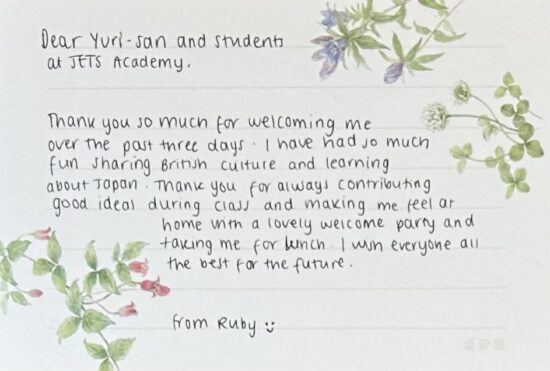 Dear Yuri-san and students
at JETS Academy.
Thank you so much for welcoming me
over the past three days. I have had so much
fun sharing British culture and learning
about Japan. Thank you for always contributing
good ideas during class and making me feel at
home with a lovely welcome party and
taking me for lunch. I wish everyone all
the best for the future.
from Ruby :)